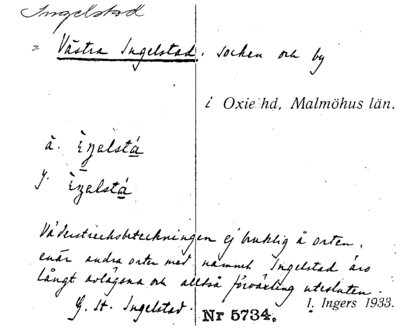 Ingelstad
= Västra Ingelstad. socken och by
i Oxie hd, Malmöhus län.
ä.
y.
Väderstrecksbeteckningen ej bruklig å orten,
enär andra orter med namnet Ingelstad äro
långt avlägsna och alltså förväxling utesluten.
I. Ingers 1933.
G. St. Ingelstad.
Nr 5734.